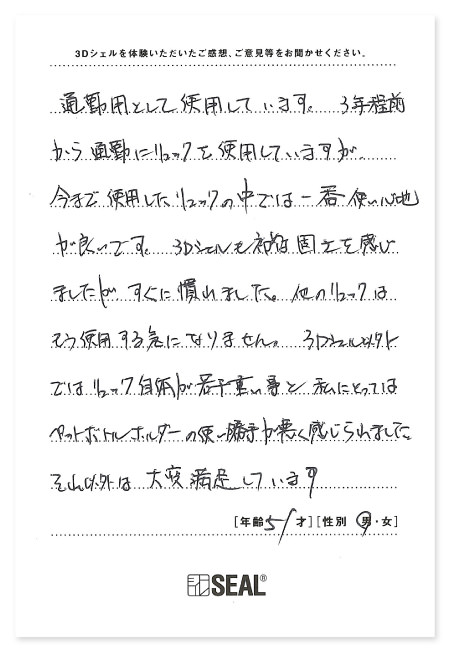 3Dシェルを体験いただいたご感想、ご意見等をお聞かせください。
通勤用として使用しています。 3年程前
から通勤にリュックを使用していますが、
今まで使用したリュックの中では一番使い心地
が良いです。3Dシェルも初は固さを感じ
ましたが すぐに慣れました。他のリュックは
もう使用する気になりません。3Dシェル以外
ではリュック自体が若干重い事と私にとっては
ペットボトルホルダーの使い勝手が悪く感じられました。
それ以外は 大変満足しています
[年齢 51 才][性別 男・女]
SEAL®